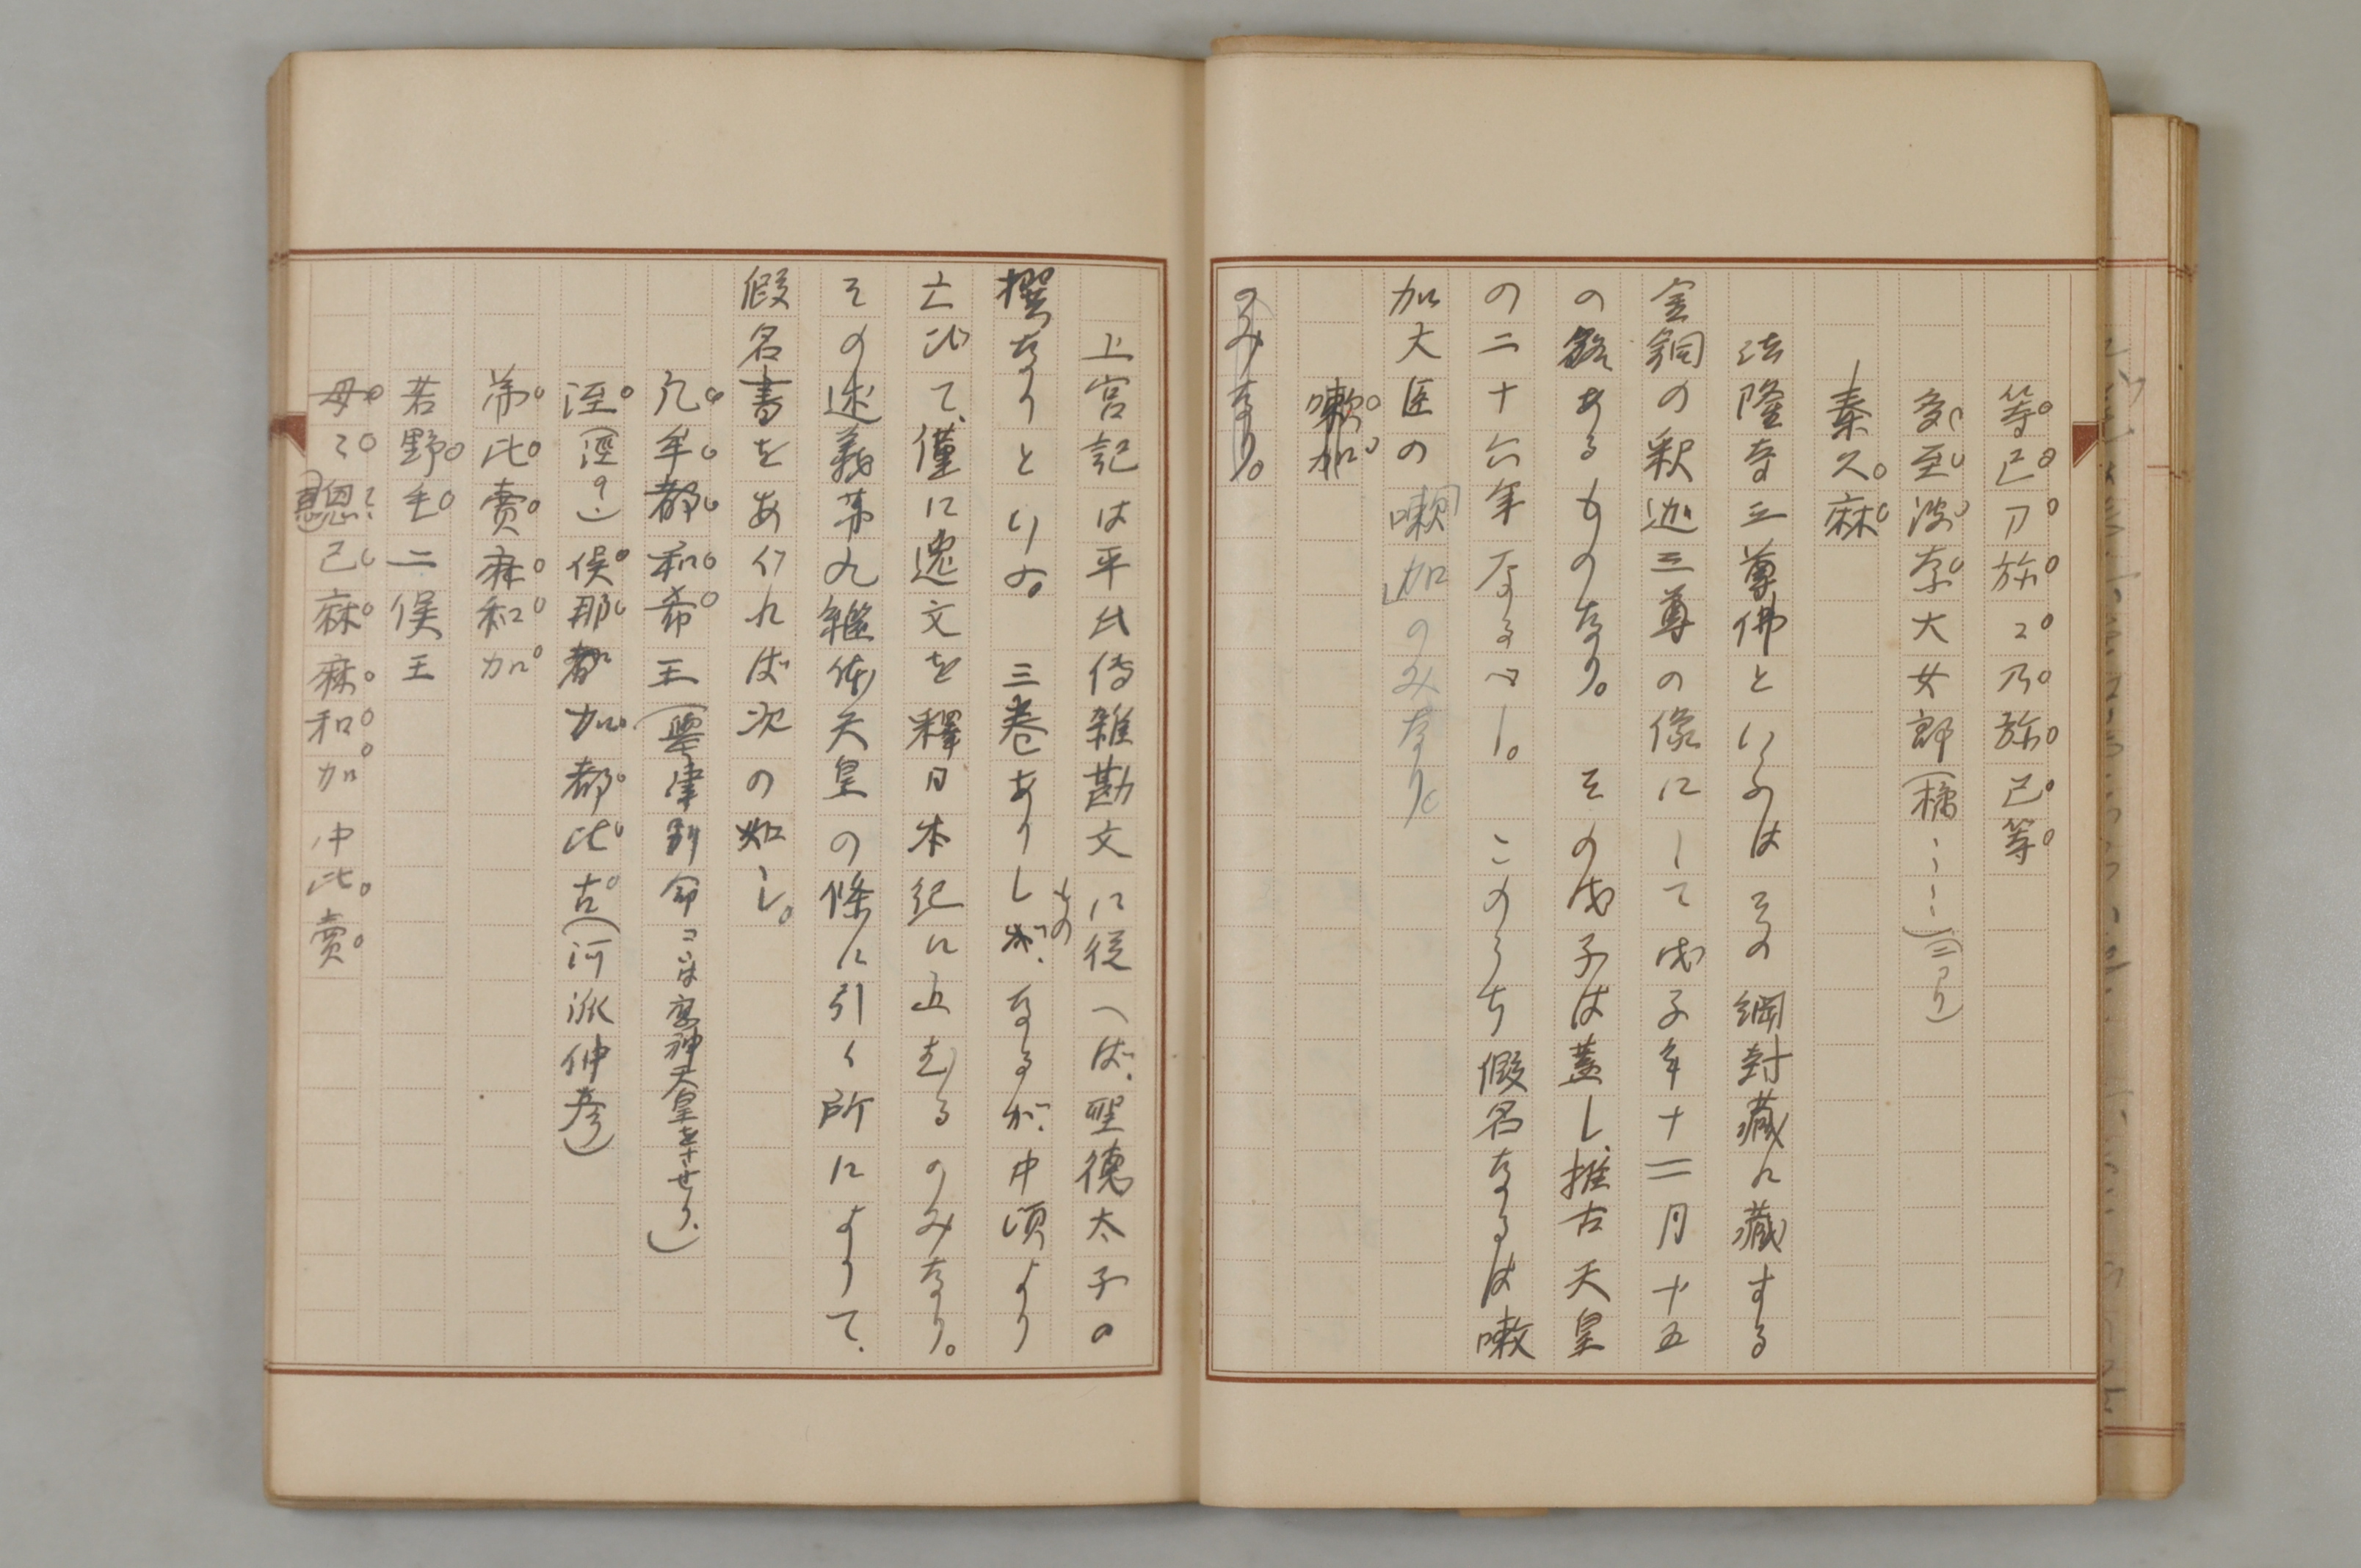 等已刀弥〻乃弥已等
多至波奈大女郎(橘〻〻〻)(二アリ)
秦久麻
法隆寺三尊佛といふはその綱封藏に藏する
金銅の釈迦三尊の像にして戊子年十二月十五
の銘あるものなり。その戊子は蓋し、推古天皇
の二十六年なるべし。このうち假名なるは嗽
加大臣の「嗽加」のみなり。
嗽加
のみなり。
上宮記は平氏傳雜勘文に從へば、聖德太子の
撰なりといふ。三巻ありしものなるが、中頃より
亡びて、僅に逸文を釋日本紀に止むるのみなり。
その述義第九繼体天皇の條に引く所によりて、
假名書をあぐれば次の如し。
凡牟都和希王(譽津別命コハ應神天皇をさせり、)
洷(淫?)俣那都加都比古(河派仲彥)
弟比賣麻和加
若野毛二俣王
母〻恩(思)己麻麻和加中比賣